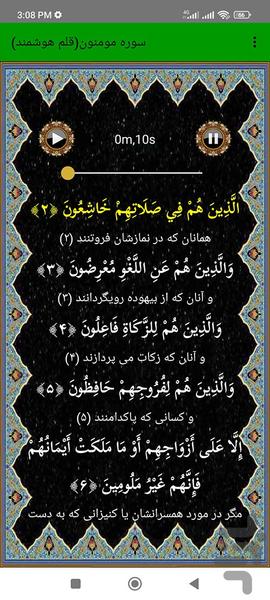 3:08 PM
سوره مومنون(قلم هوشمند)
0m,10s
الَّذِينَ هُمْ فِي صَلَاتِهِمْ خَاشِعُونَ ﴿۲﴾
همانان که در نمازشان فروتنند (۲)
وَالَّذِينَ هُمْ عَنِ اللَّغْوِ مُعْرِضُونَ ﴿۳﴾
و آنان که از بیهوده رویگردانند (۳)
وَالَّذِينَ هُمْ لِلزَّكَاةِ فَاعِلُونَ ﴿۴﴾
و آنان که زکات می پردازند (۴)
وَالَّذِينَ هُمْ لِفُرُوجِهِمْ حَافِظُونَ ﴿۵﴾
و کسانی که پاکدامنند (۵)
إِلَّا عَلَى أَزْوَاجِهِمْ أَوْ مَا مَلَكَتْ أَيْمَانُهُمْ
فَإِنَّهُمْ غَيْرُ مَلُومِينَ ﴿۶﴾
مگر در مورد همسرانشان یا کنیزانی که به دست